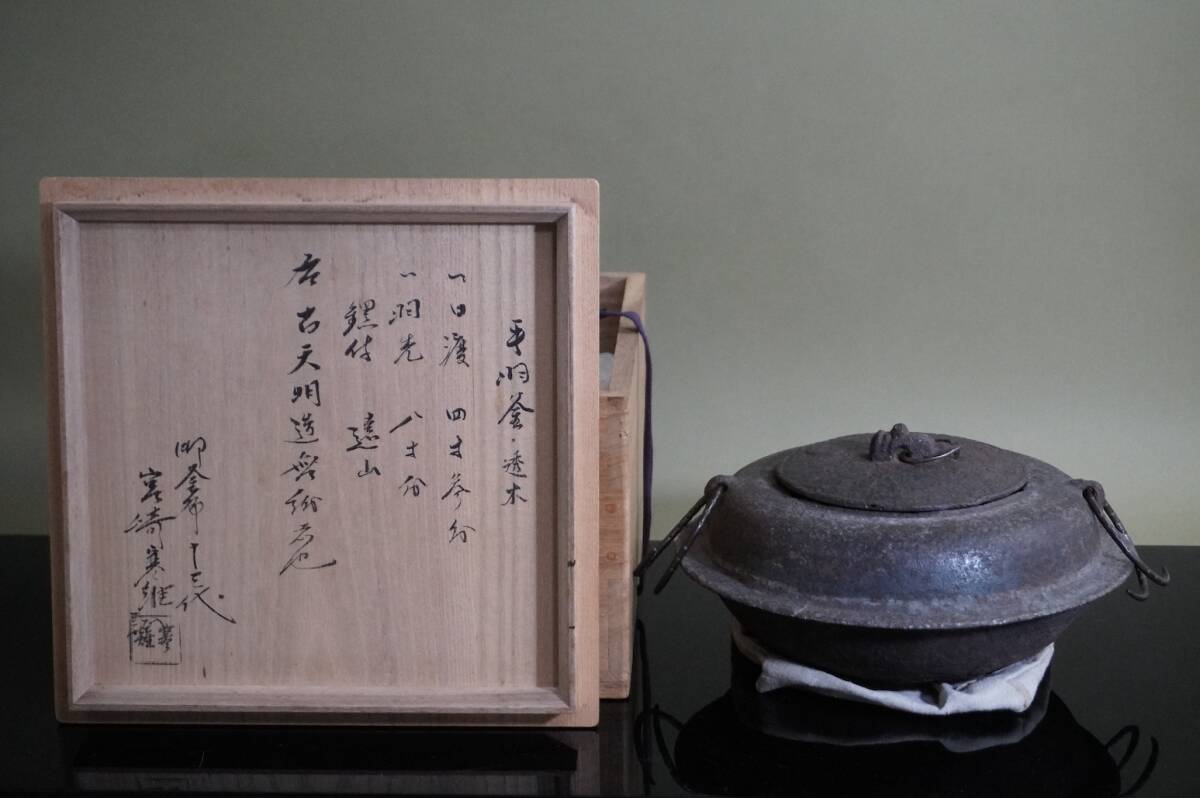 平羽釜・透木
一 口渡 四寸参分
一 羽先 八寸分
鐶付 遠山
右古天明造無紛者也
御釜師十三代
宮崎寒雉